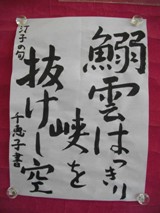 鰯雲はっきり
峡を
抜けし空
汀子の句
千恵子書